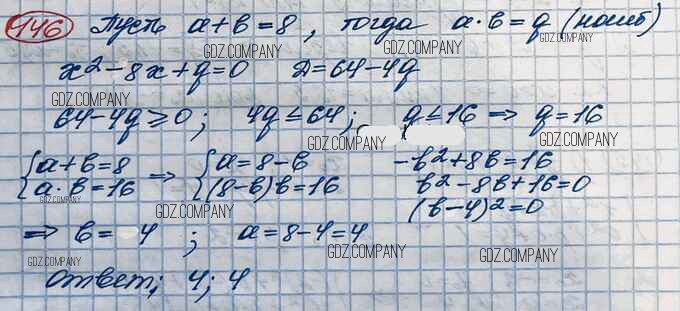 146 Пусть a+b=8, тогда a·b=q (наиб)
GDZ.COMPANY GDZ.COMPANY GDZ.COMPANY
x²-8x+q=0 D=64-4q
GDZ.COMPANY
64-4q≥0; 4q≤64; q≤16 ⇒ q=16
GDZ.COMPANY GDZ.COMPANY
{a+b=8 ⇒ {a=8-b -b²+8b=16
{a·b=16 {(8-b)b=16 b²-8b+16=0
GDZ.COMPANY GDZ.COMPANY (b-4)²=0
⇒ b=4; a=8-4=4
GDZ.COMPANY GDZ.COMPANY GDZ.COMPANY
Ответ; 4; 4
GDZ.COMPANY